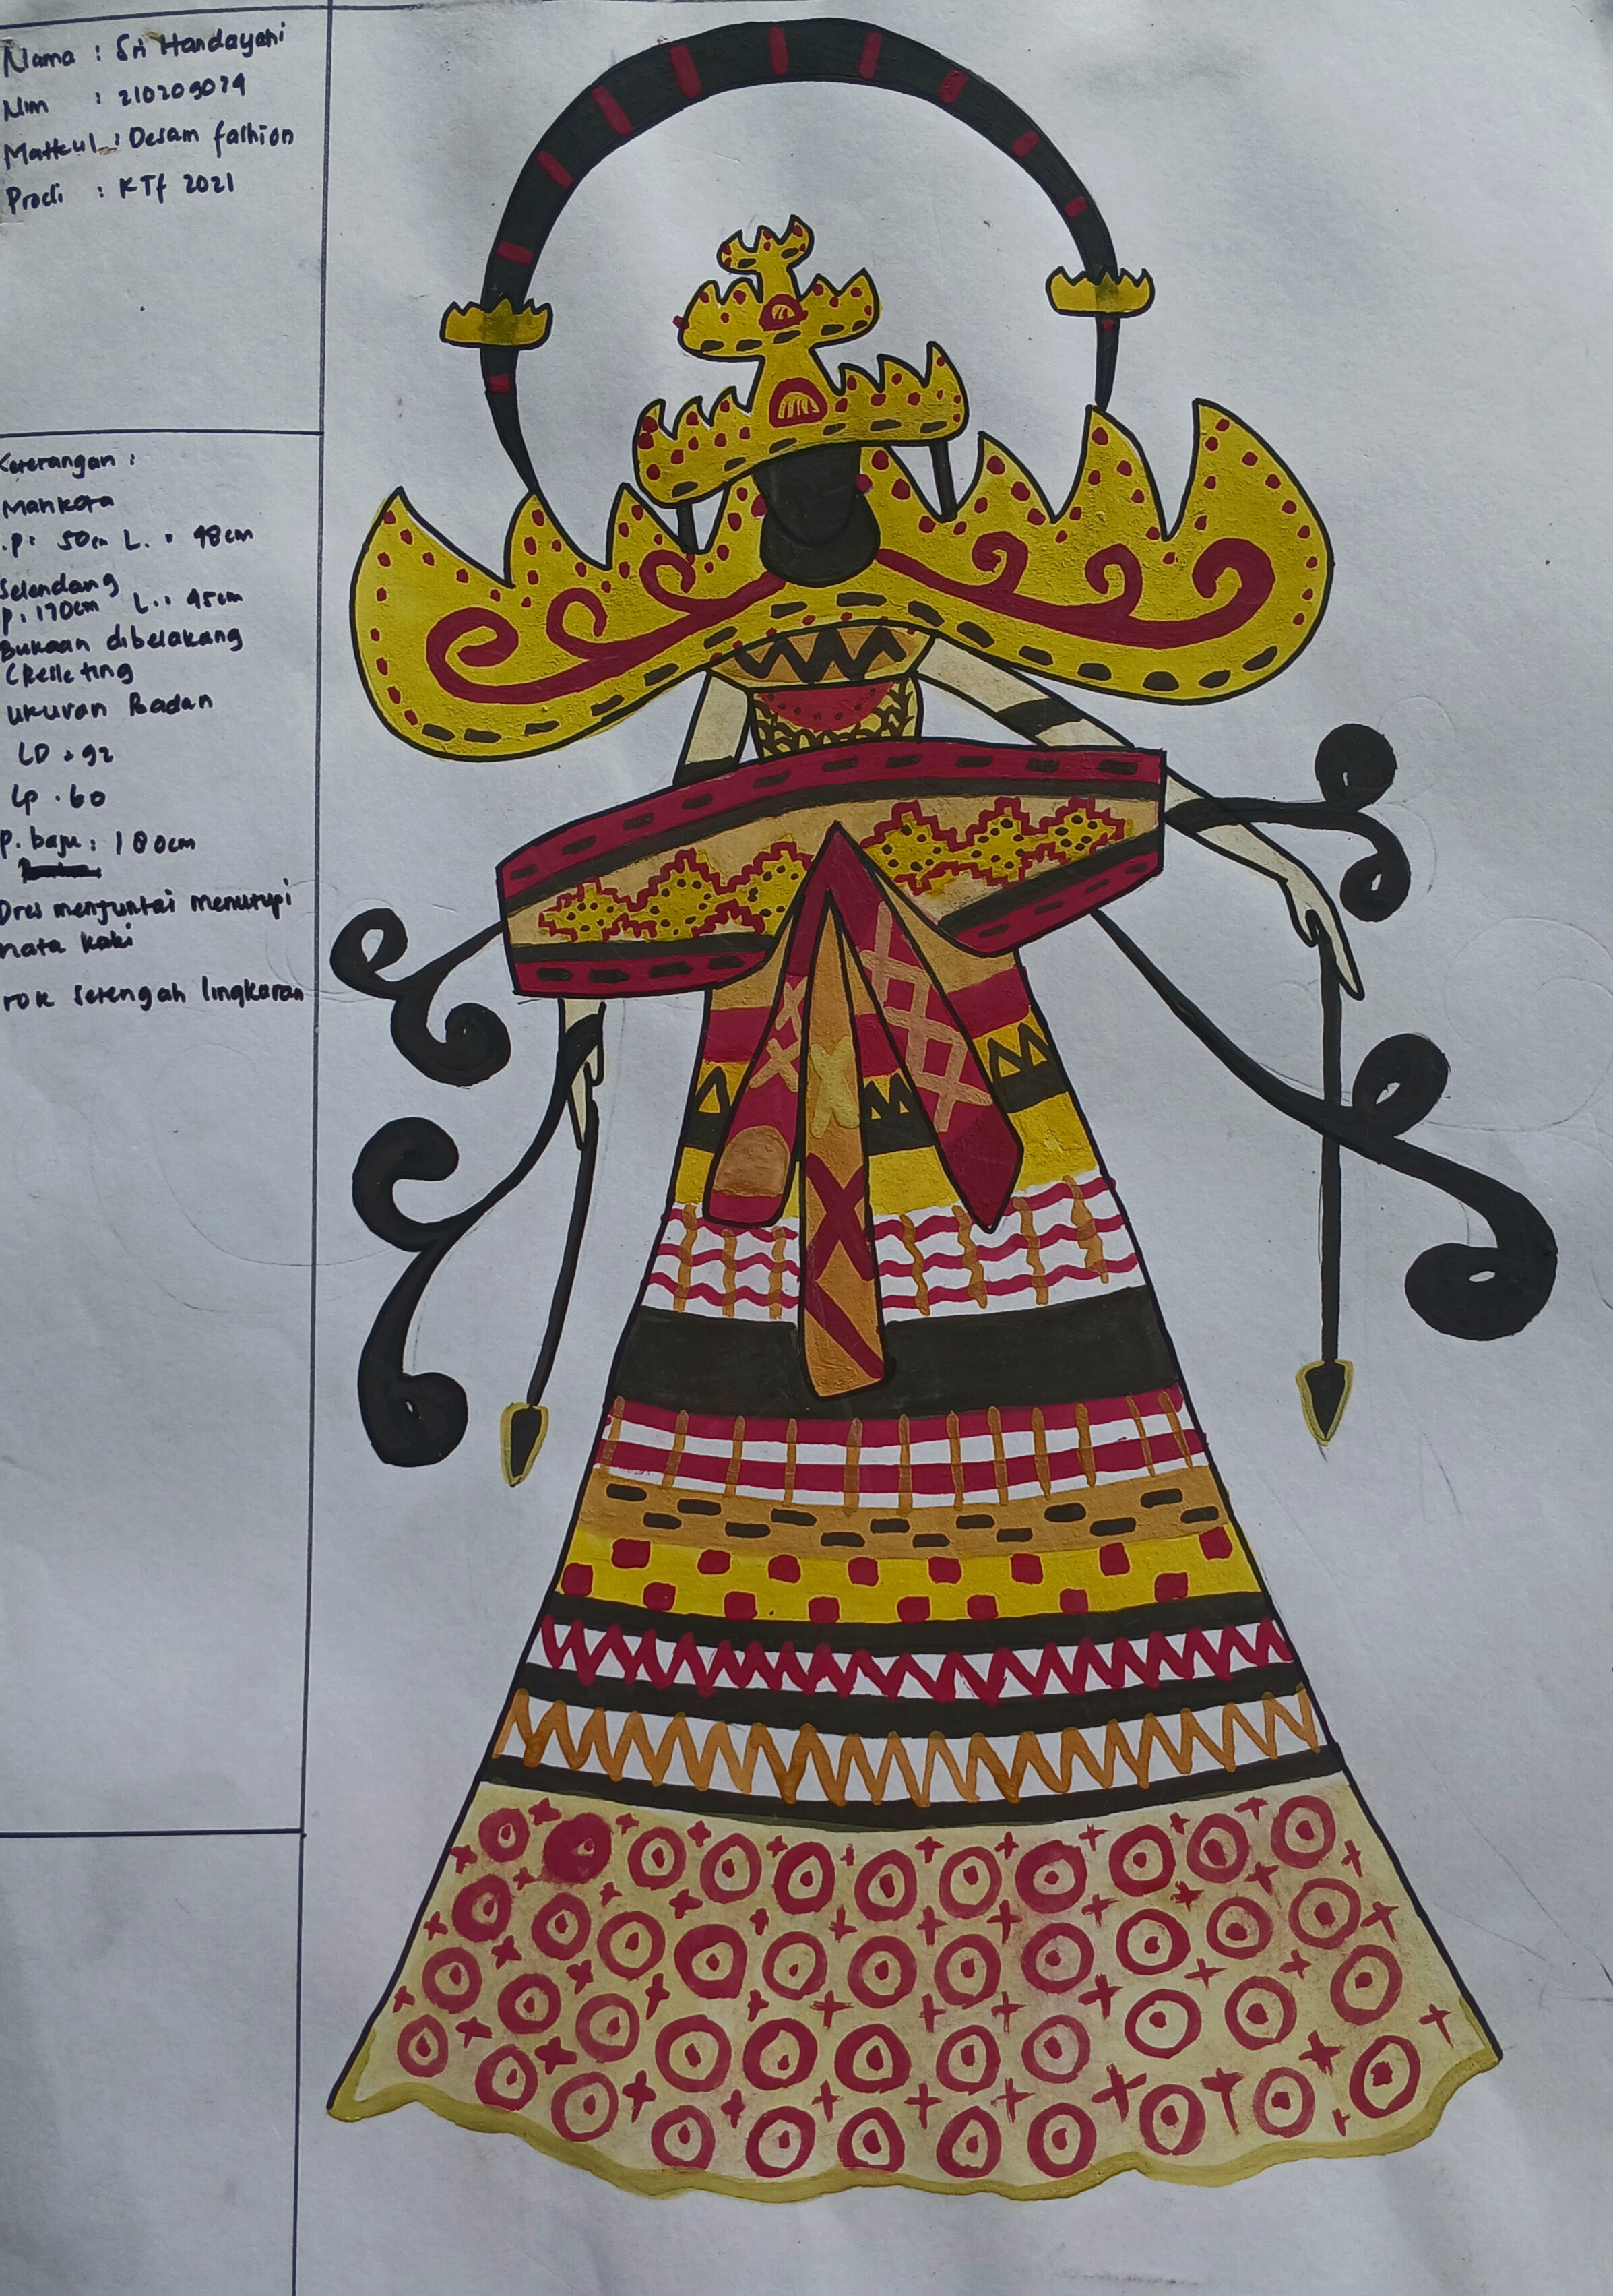 Nama : Sri Handayani
Nim : 210209079
Matkul : Desain fashion
Prodi : KTf 2021
Keterangan :
Mahkota
P: 50cm L. : 48cm
Selendang
P: 170cm L.: 45cm
Bukaan dibelakang
(Resleting
ukuran Badan
LD : 92
LP . 60
P. baju : 180cm
Dres menjuntai menutupi
mata kaki
rok setengah lingkaran